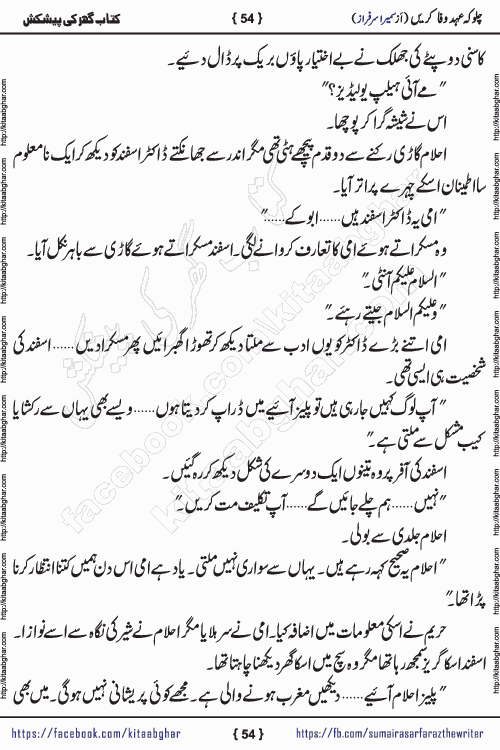 چلو کہ عہد وفا کریں (از سمیرا سرفراز)
{ 54 }
کتاب گھر کی پیشکش
کاسنی دوپٹے کی جھلک نے بے اختیار پاؤں بریک پر ڈال دئیے۔
"مے آئی ہیلپ یو لیڈیز؟"
اس نے شیشہ گرا کر پوچھا۔
احلام گاڑی رکنے سے دو قدم پیچھے ہٹی تھی مگر اندر سے جھانکتے ڈاکٹر اسفند کو دیکھ کر ایک نامعلوم
سا اطمینان اسکے چہرے پر اتر آیا۔
"امی یہ ڈاکٹر اسفند ہیں......ابو کے......"
وہ مسکراتے ہوئے امی کا تعارف کروانے لگی۔ اسفند مسکراتے ہوئے گاڑی سے باہر نکل آیا۔
"السلام علیکم آنٹی۔"
"وعلیکم السلام جیتے رہئے۔"
امی اتنے بڑے ڈاکٹر کو یوں ادب سے ملتا دیکھ کر تھوڑا گھبرائیں پھر مسکرا دیں......اسفند کی
شخصیت ہی ایسی تھی۔
"آپ لوگ کہیں جا رہی ہیں تو پلیز آئیے میں ڈراپ کر دیتا ہوں......ویسے بھی یہاں سے رکشا یا
کیب مشکل سے ملتی ہے۔"
اسفند کی آفر پر وہ تینوں ایک دوسرے کی شکل دیکھ کر رہ گئیں۔
"نہیں......ہم چلے جائیں گے......آپ تکلیف مت کریں۔"
احلام جلدی سے بولی۔
"احلام یہ صحیح کہہ رہے ہیں۔ یہاں سے سواری نہیں ملتی۔ یاد ہے امی اس دن ہمیں کتنا انتظار کرنا
پڑا تھا۔"
حریم نے اسکی معلومات میں اضافہ کیا۔ امی نے سر ہلایا مگر احلام نے شیر کی نگاہ سے اسے نوازا۔
اسفند اسکا گریز سمجھ رہا تھا مگر وہ سچ میں اسکا گھر دیکھنا چاہتا تھا۔
"پلیز احلام آئیے......دیکھیں مغرب ہونے والی ہے۔ مجھے کوئی پریشانی نہیں ہوگی۔ میں بھی
https://facebook.com/kitaabghar
{ 54 }
https://fb.com/sumairasarfarazthewriter
http://kitaabghar.com
facebook.com/kitaabghar
kitaabghar.com
کتاب گھر کی پیشکش